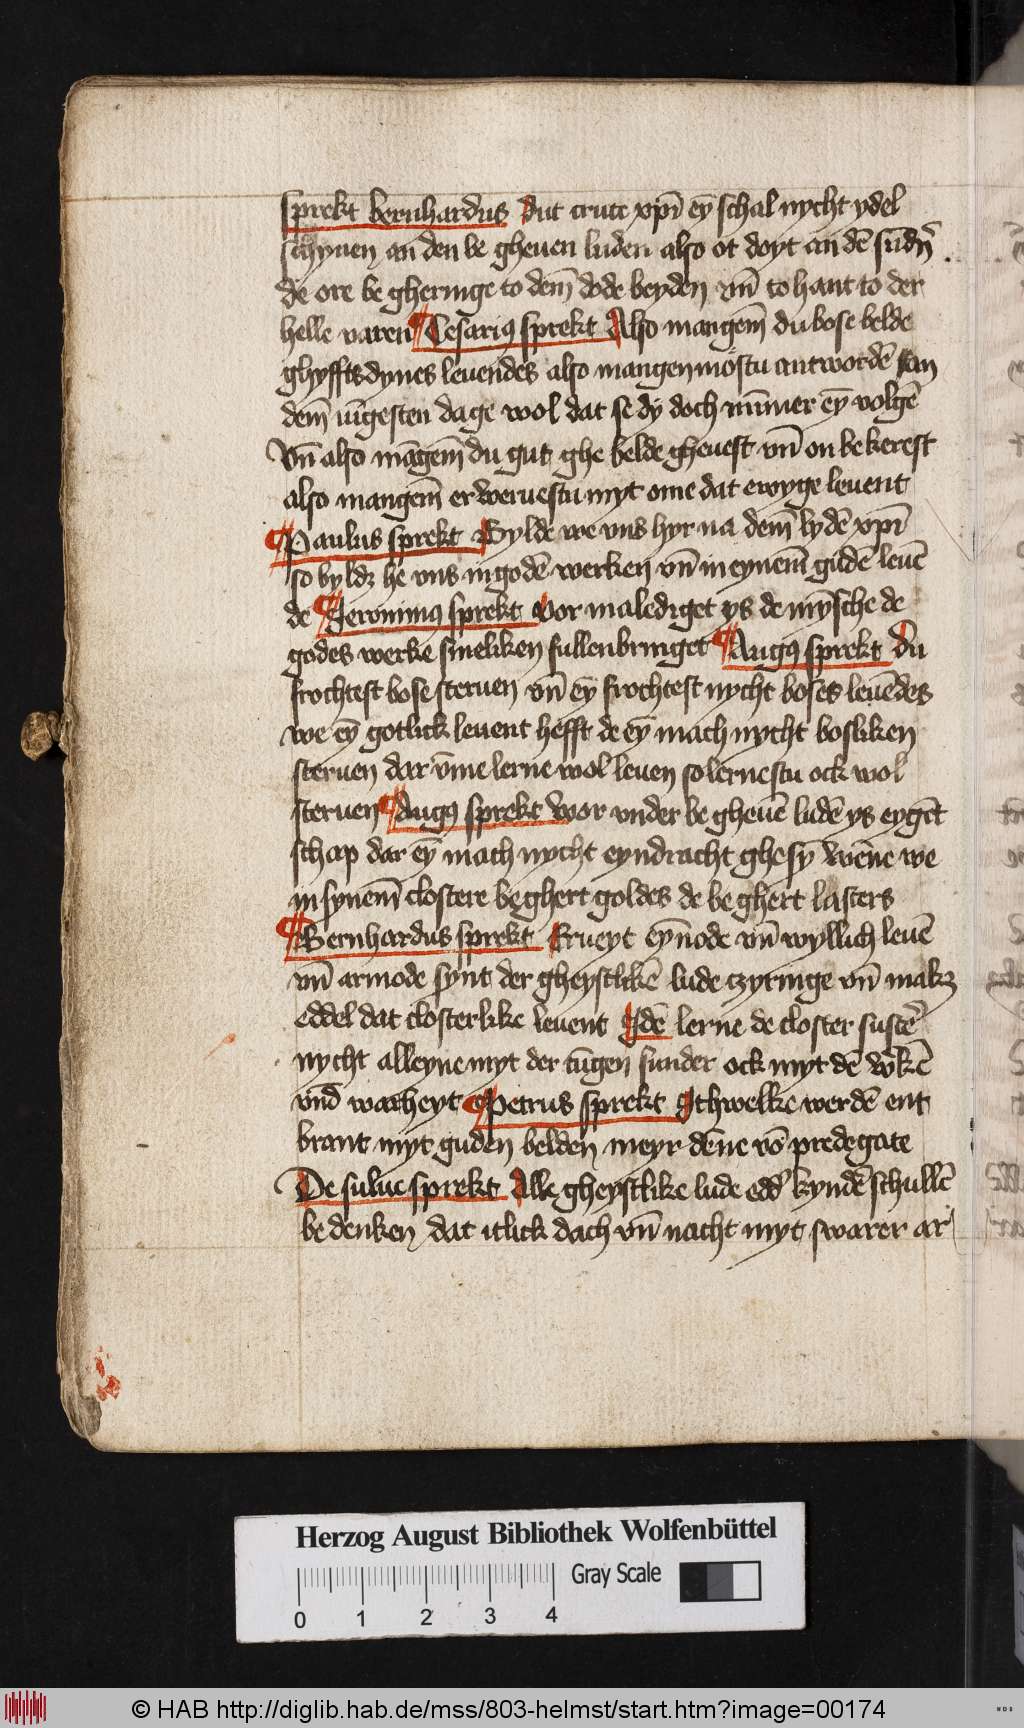 sprekt bernhardus dut cruce xp̄i ey̅ schal nycht ydel
schynen an den be gheuen luden also ot doyt an dē
de ore be gheringe to dem̄ dode beyden vn̄ to hant to der
helle varen ¶ Cesariꝯ sprekt Also mangem̄ du bose belde
ghyffts dynes leuendes also mangen mostu antwordē an
dem̄ iūgesten dage wol dat se dy doch nūmer ey̅ volgē
Vn̄ also māgem̄ du gut ghe belde gheuest vn̄ on bekerest
also mangem̄ erweruestu myt ome dat ewyge leuent
¶ Paulus sprekt Bylde we vns hyr na dem̄ lydē xp̄i
so byldꝫ he vns in godē werken vn̄ in eynem̄ gudē leuē
de ¶ Jeronimꝯ sprekt vor malediget ys de mȳsche de
godes werke sineliken fullenbringet ¶ Augꝯ sprekt du
frochtest bose steruen vn̄ ey̅ frochtest nycht boses leuēdes
we ey̅ gotlick leuent hefft de ey̅ mach nycht bosliken
steruen dar v̄me lerne wol leuen so lernestu ock wol
steruen ¶ Augꝯ sprekt wor vnder be gheuē ludē ys eygēt
schap dar ey̅ mach nycht eyndracht ghe sy̅ wēne we
in synem̄ clostere beghert goldes de be ghert lasters
¶ Bernhardus sprekt Frueyt ey̅mode vn̄ wyllich leuē
vn̄ armode synt der gheystlikē lude czyringe vn̄ makꝫ
eddel dat closterlike leuent Jdē lerne de closter sustē
nycht alleyne myt der tūgen sunder ock myt dē wkē
vnd warheyt ¶ Petrus sprekt Jthwelke werdē ent
brant myt guden belden meyr dēne vō predegate
De sulue sprekt Alle gheystlike lude edd kyndē schullē
be denken dat itlick dach vn̄ nacht myt swarer ar
Herzog August Bibliothek Wolfenbüttel
Gray Scale
0 1 2 3 4
© HAB http://diglib.hab.de/mss/803-helmst/start.htm?image=00174